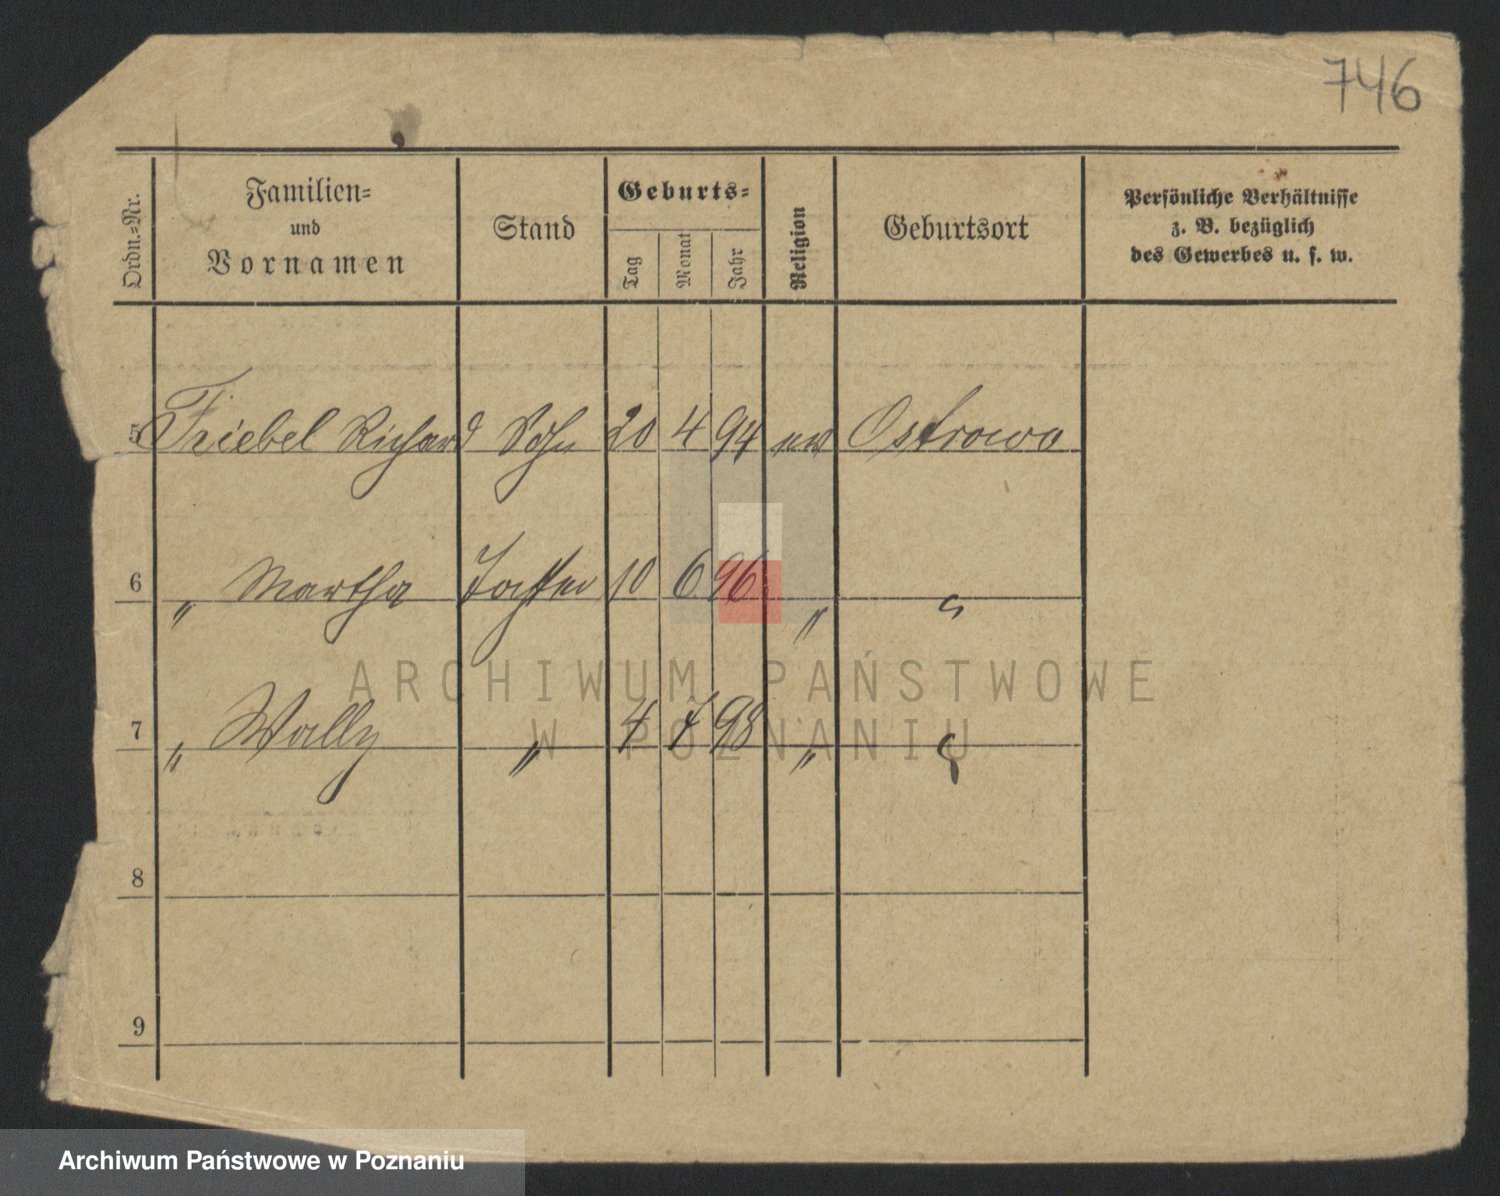 746
Ordn.=Nr. Familien= und Vornamen Stand Geburts= Tag Monat Jahr Religion Geburtsort Persönliche Verhältnisse z. B. bezüglich des Gewerbes u. s. w.
5 Friebel Richard Sohn 20 4 94 ev Ostrowo
6 " Martha Tochter 10 6 96 " "
ARCHIWUM PAŃSTWOWE
7 " Wally " 4 7 98 " "
W POZNANIU
8
9
Archiwum Państwowe w Poznaniu